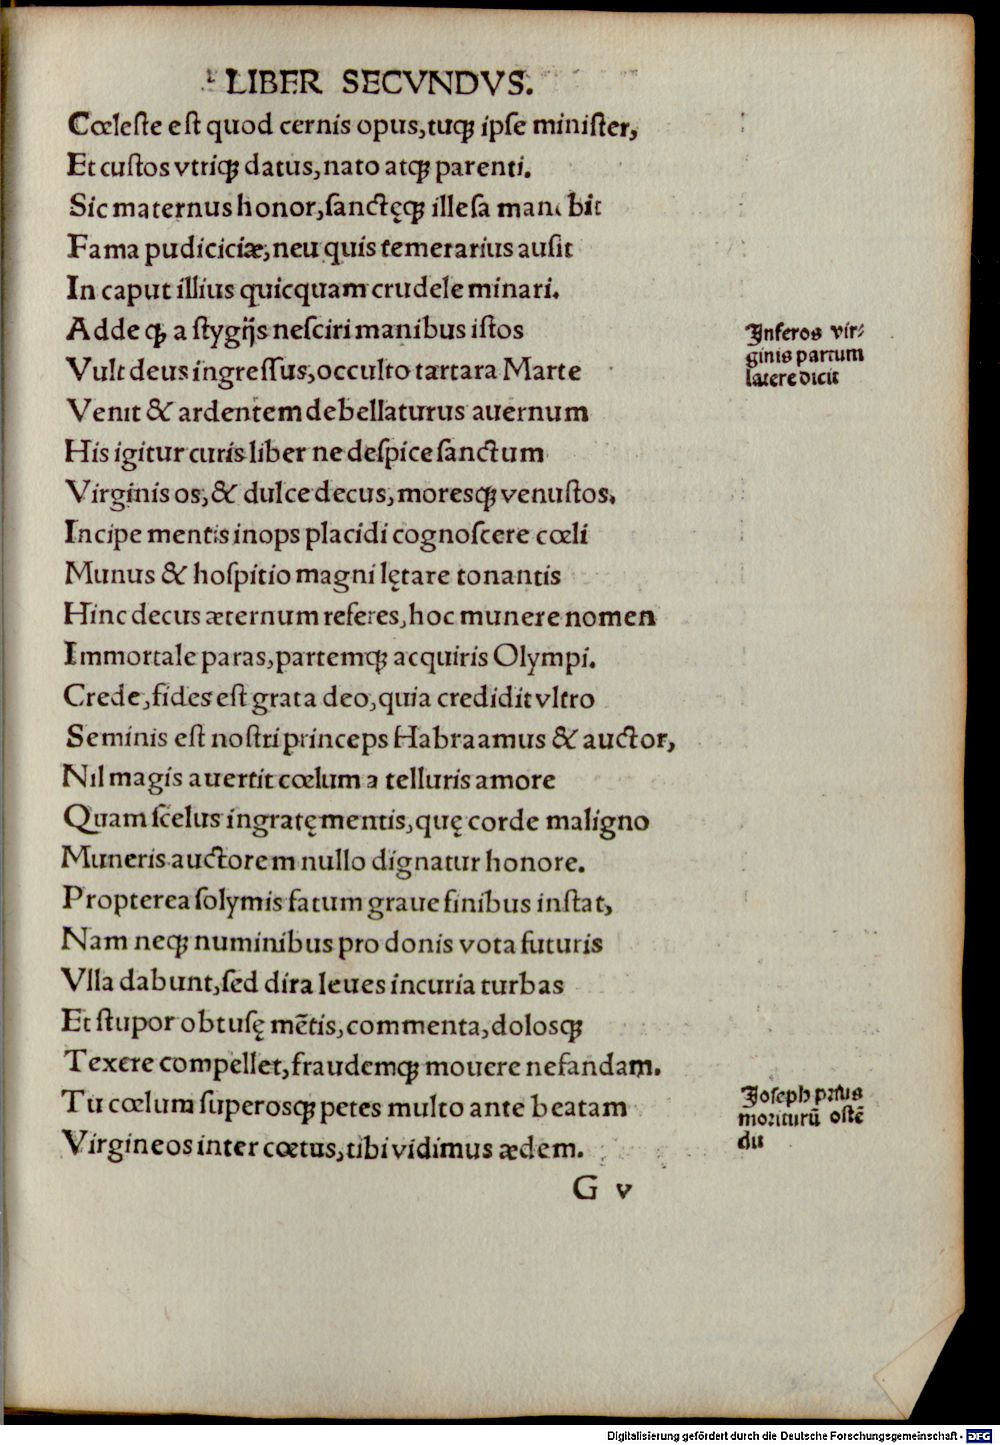 LIBER SECVNDVS.
Cœleſte eſt quod cernis opus, tuqꝫ ipſe miniſter,
Et cuſtos vtriqꝫ datus, nato atqꝫ parenti.
Sic maternus honor, ſanctęqꝫ illeſa manebit
Fama pudiciciæ, neu quis temerarius auſit
In caput illius quicquam crudele minari.
Adde qꝫ a ſtygijs neſciri manibus iſtos
Vult deus ingreſſus, occulto tartara Marte
Venit & ardentem debellaturus auernum
His igitur curis liber ne deſpice ſanctum
Virginis os, & dulce decus, moresqꝫ venuſtos.
Incipe mentis inops placidi cognoſcere cœli
Munus & hoſpitio magni lętare tonantis
Hinc decus æternum referes, hoc munere nomen
Immortale paras, partemqꝫ acquiris Olympi.
Crede, fides eſt grata deo, quia credidit vltro
Seminis eſt noſtri princeps Habraamus & auctor,
Nil magis auertit cœlum a telluris amore
Quam ſcelus ingratę mentis, quę corde maligno
Muneris auctorem nullo dignatur honore.
Propterea ſolymis fatum graue finibus inſtat,
Nam neqꝫ numinibus pro donis vota futuris
Vlla dabunt, ſed dira leues incuria turbas
Et ſtupor obtuſę mētis, commenta, dolosqꝫ
Texere compellet, fraudemqꝫ mouere nefandam.
Tu cœlum ſuperosqꝫ petes multo ante beatam
Virgineos inter cœtus, tibi vidimus ædem.
G v
Inferos vir⸗
ginis partum
latere dicit
Joſeph prſus
moriturū oſtē
dit
Digitalisierung gefördert durch die Deutsche Forschungsgemeinschaft - DFG